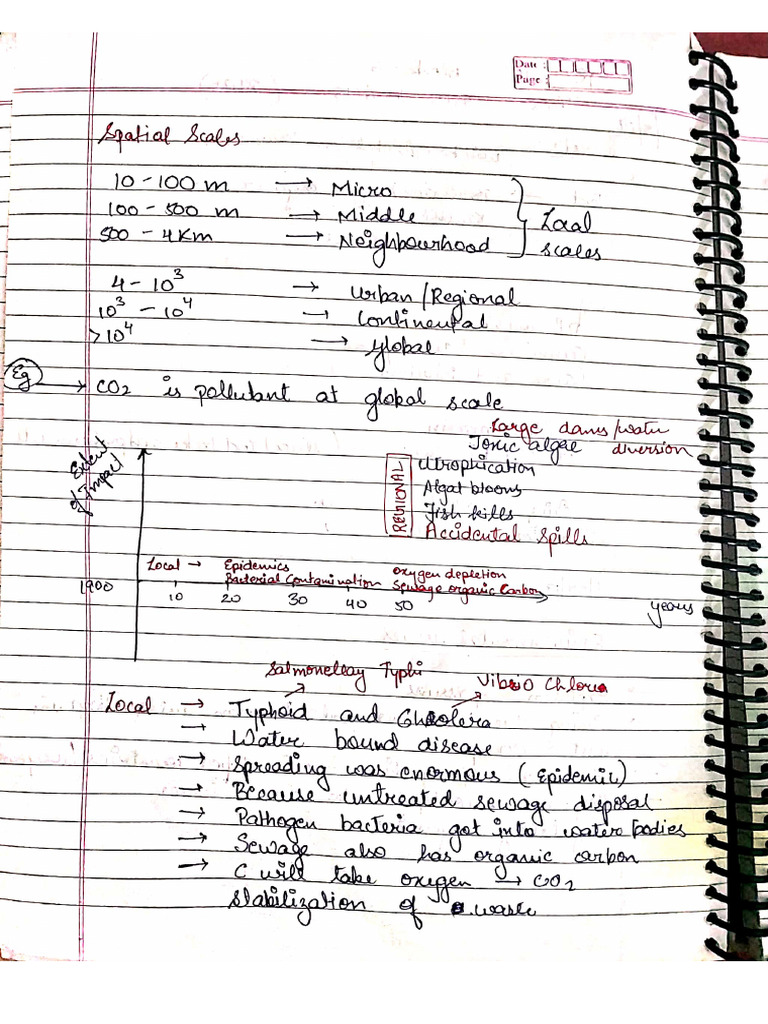 Date :
Page :
Spatial Scales
10 - 100 m → Micro
100 - 500 m → Middle
500 - 4 Km → Neighbourhood
Local
scales
4 - 10³ → Urban/Regional
10³ - 10⁴ → Continental
>10⁴ → global
Eg → CO2 is pollutant at global scale
Large dams/water
Toxic algae diversion
Extent
of Impact
REGIONAL
Utrophication
Algat blooms
Fish kills
Accidental Spills
Local → Epidemics Oxygen depletion
Bacterial Contamination Sewage organic Carbon
1900 10 20 30 40 50 years
Salmonellay Typhi Vibro Chlora
Local → Typhoid and Cholera
→ Water bound disease
→ Spreading was enormous (Epidemic)
→ Because untreated sewage disposal
→ Pathogen bacteria got into water bodies
→ Sewage also has organic carbon
→ C will take oxigen → CO2
Stabilization of waste